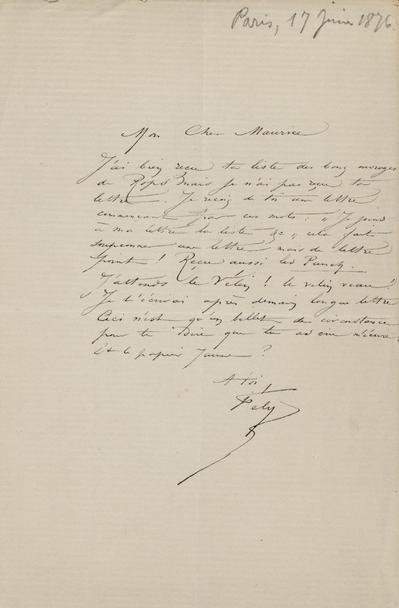 Paris, 17 Juin 1876.
Mon Cher Maurice
J'ai bien reçu ta liste des bons ouvrages
de Rops mais je n'ai pas reçu ta
lettre. Je reçois de toi une lettre
commençant par ces mots: "Je joins
à ma lettre la liste &" cela fait
supposer une lettre, mais de lettre
point! Reçu aussi les Punch.
J'attends le Vélin! le vélin veau!
Je t'écrirai après demain longue lettre
Ceci n'est qu'un billet de circonstance
pour te dire que tu as
Et le papier Jaune?
A toi